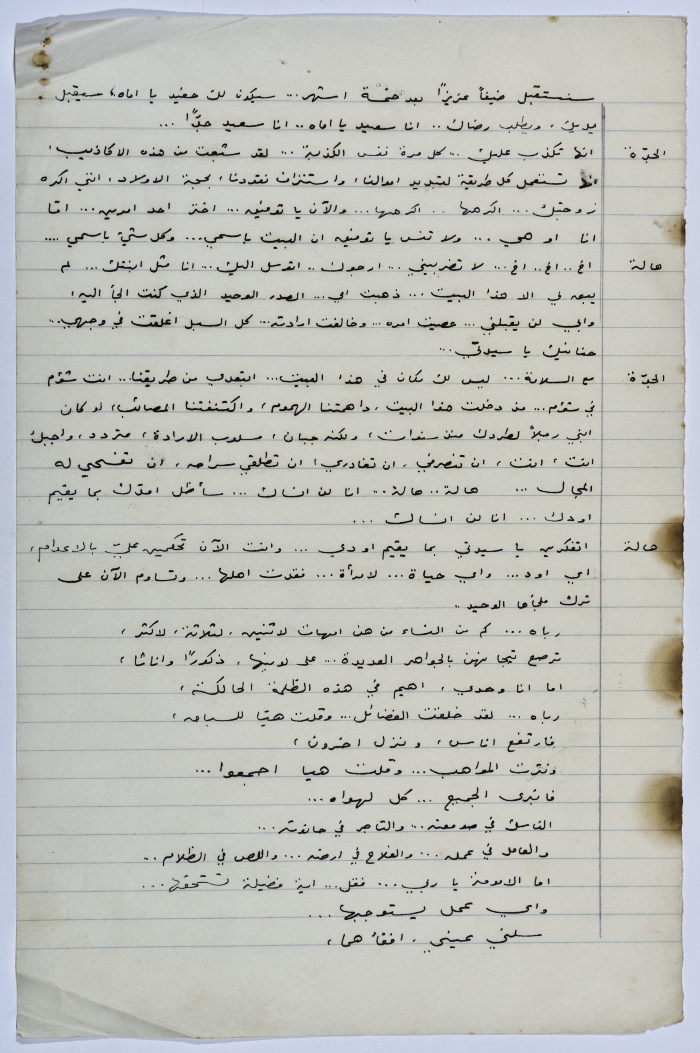 سنستقبل ضيفاً عزيزاً بعد خمسة اشهر ... سيكون لك حفيد يا اماه، سيقبل
يديك، ويطلب رضاك .. انا سعيد يا اماه .. انا سعيد جدًّا ...
الجدّة انها تكذب عليك ... كل مرة نفس الكذبة ... لقد شبعت من هذه الاكاذيب،
انها تستعمل كل طريقة لتبديد اموالنا، واستنزاف نقودنا، بحجة الاولاد، انني اكره
زوجتك ... اكرهها .. اكرهها ... والآن يا توفيق ... اختر احد امرين ... امّا
انا او هي ... ولا تنس يا توفيق ان البيت باسمي ... وكل شيء باسمي ....
هالة اخ .. اخ .. اخ ... لا تضربيني ... ارجوك .. اتوسل اليك ... انا مثل ابنتك ... لم
يبق لي الا هذا البيت ... ذهبت امي ... الصدر الوحيد الذي كنت الجأ اليه،
وابي لن يقبلني ... عصيت امره ... وخالفت ارادته ... كل السبل اغلقت في وجهي ..
حنانيك يا سيدتي ...
الجدّة مع السلامة ... ليس لك مكان في هذا البيت ... ابتعدي من طريقنا ... انت شؤم
في شؤم ... مذ دخلت هذا البيت، داهمتنا الهموم، واكتنفتنا المصائب، لو كان
ابني رجلاً لطردك منذ سنوات، ولكنه جبان، مسلوب الارادة، متردد، واجبك
انت، انت، ان تنصرفي، ان تغادري، ان تطلقي سراحه، ان تفسحي له
المجال ... هالة .. هالة .. انا لن انساك ... سأظل امدّك بما يقيم
اودك ... انا لن انساك ...
هالة اتفكرين يا سيدتي بما يقيم اودي ... وانت الآن تحكمين عليّ بالاعدام،
اي اود ... واي حياة ... لامرأة ... فقدت اهلها ... وتساوم الآن على
ترك ملجأها الوحيد ..
رباه ... كم من النساء من هن امهات لاثنين، لثلاثة، لاكثر،
ترصع تيجانهن بالجواهر العديدة ... على لونيها، ذكورًا واناثا،
اما انا وحدي، اهيم في هذه الظلمة الحالكة،
رباه ... لقد خلقت الفضائل ... وقلت هيّا للسباق،
فارتفع اناس، ونزل اخرون،
ونثرت المواهب ... وقلت هيا اجمعوا ...
فانبرى الجميع ... كل لهواه ...
الناسك في صومعته ... والتاجر في حانوته ...
والعامل في عمله ... والفلاح في ارضه ... واللص في الظلام ..
اما الامومة يا ربي ... فقل ... اية فضيلة تستحقها ...
واي عمل يستوجبها ...
سلني عيني، افقأهما،